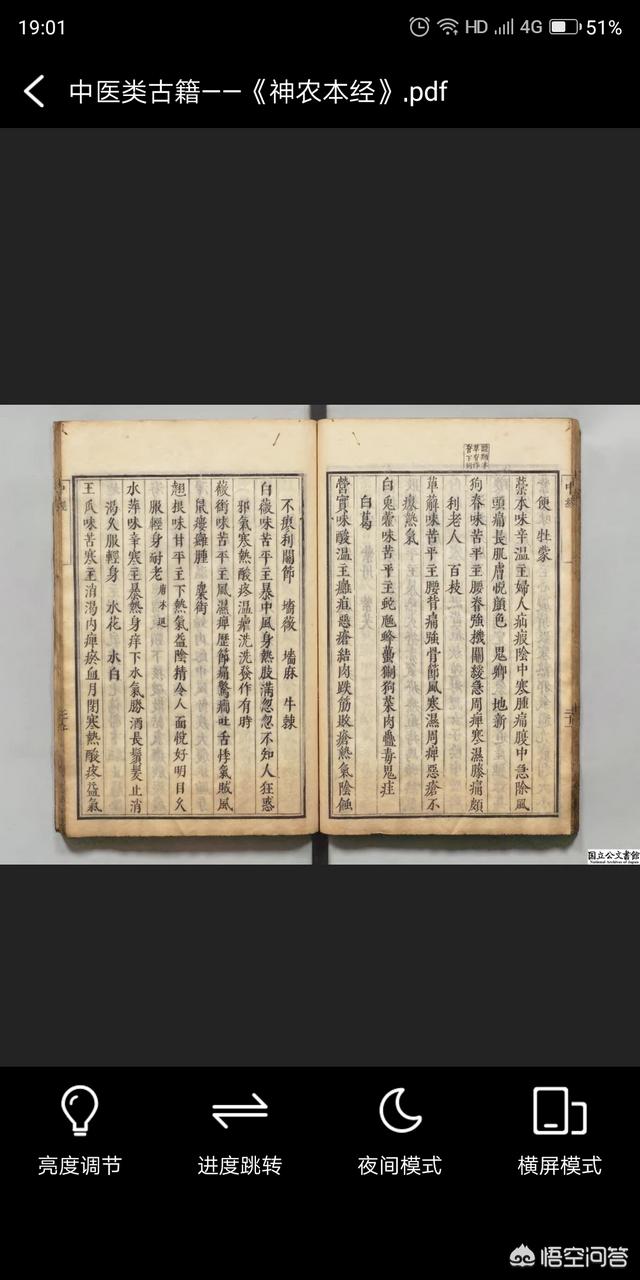 19:01
HD 4G 51%
中医类古籍——《神农本经》.pdf
便 牡蒙
藁本味辛温主婦人疝瘕陰中寒腫痛腹中急除風
頭痛長肌膚悅顏色 鬼卿 地新
狗脊味苦平主腰脊強機關緩急周痺寒濕膝痛頗
利老人 百枝
萆薢味苦平主腰背痛強骨節風寒濕周痺惡瘡不
瘳熱氣
白兔藿味苦平主蛇虺蜂蠆猘狗菜肉蠱毒鬼疰
白葛
營實味酸温主癰疽惡瘡結肉跌筋敗瘡熱氣陰蝕
不瘳利關節 墻薇 墻麻 牛棘
白薇味苦平主暴中風身熱肢滿忽忽不知人狂惑
邪氣寒熱酸疼温瘧洗洗發作有時
薇銜味苦平主風濕痺歷節痛驚癇吐舌悸氣賊風
鼠瘻癰腫 麋銜
翹根味甘平主下熱氣益陰精令人面悅好明目久
服輕身耐老
水萍味辛寒主暴熱身痒下水氣勝酒長鬚髮止消
渴久服輕身 水花 水白
王瓜味苦寒主消渴内痺瘀血月閉寒熱酸疼益氣
国立公文書館
National Archives of Japan
亮度调节
进度跳转
夜间模式
横屏模式
悟空问答